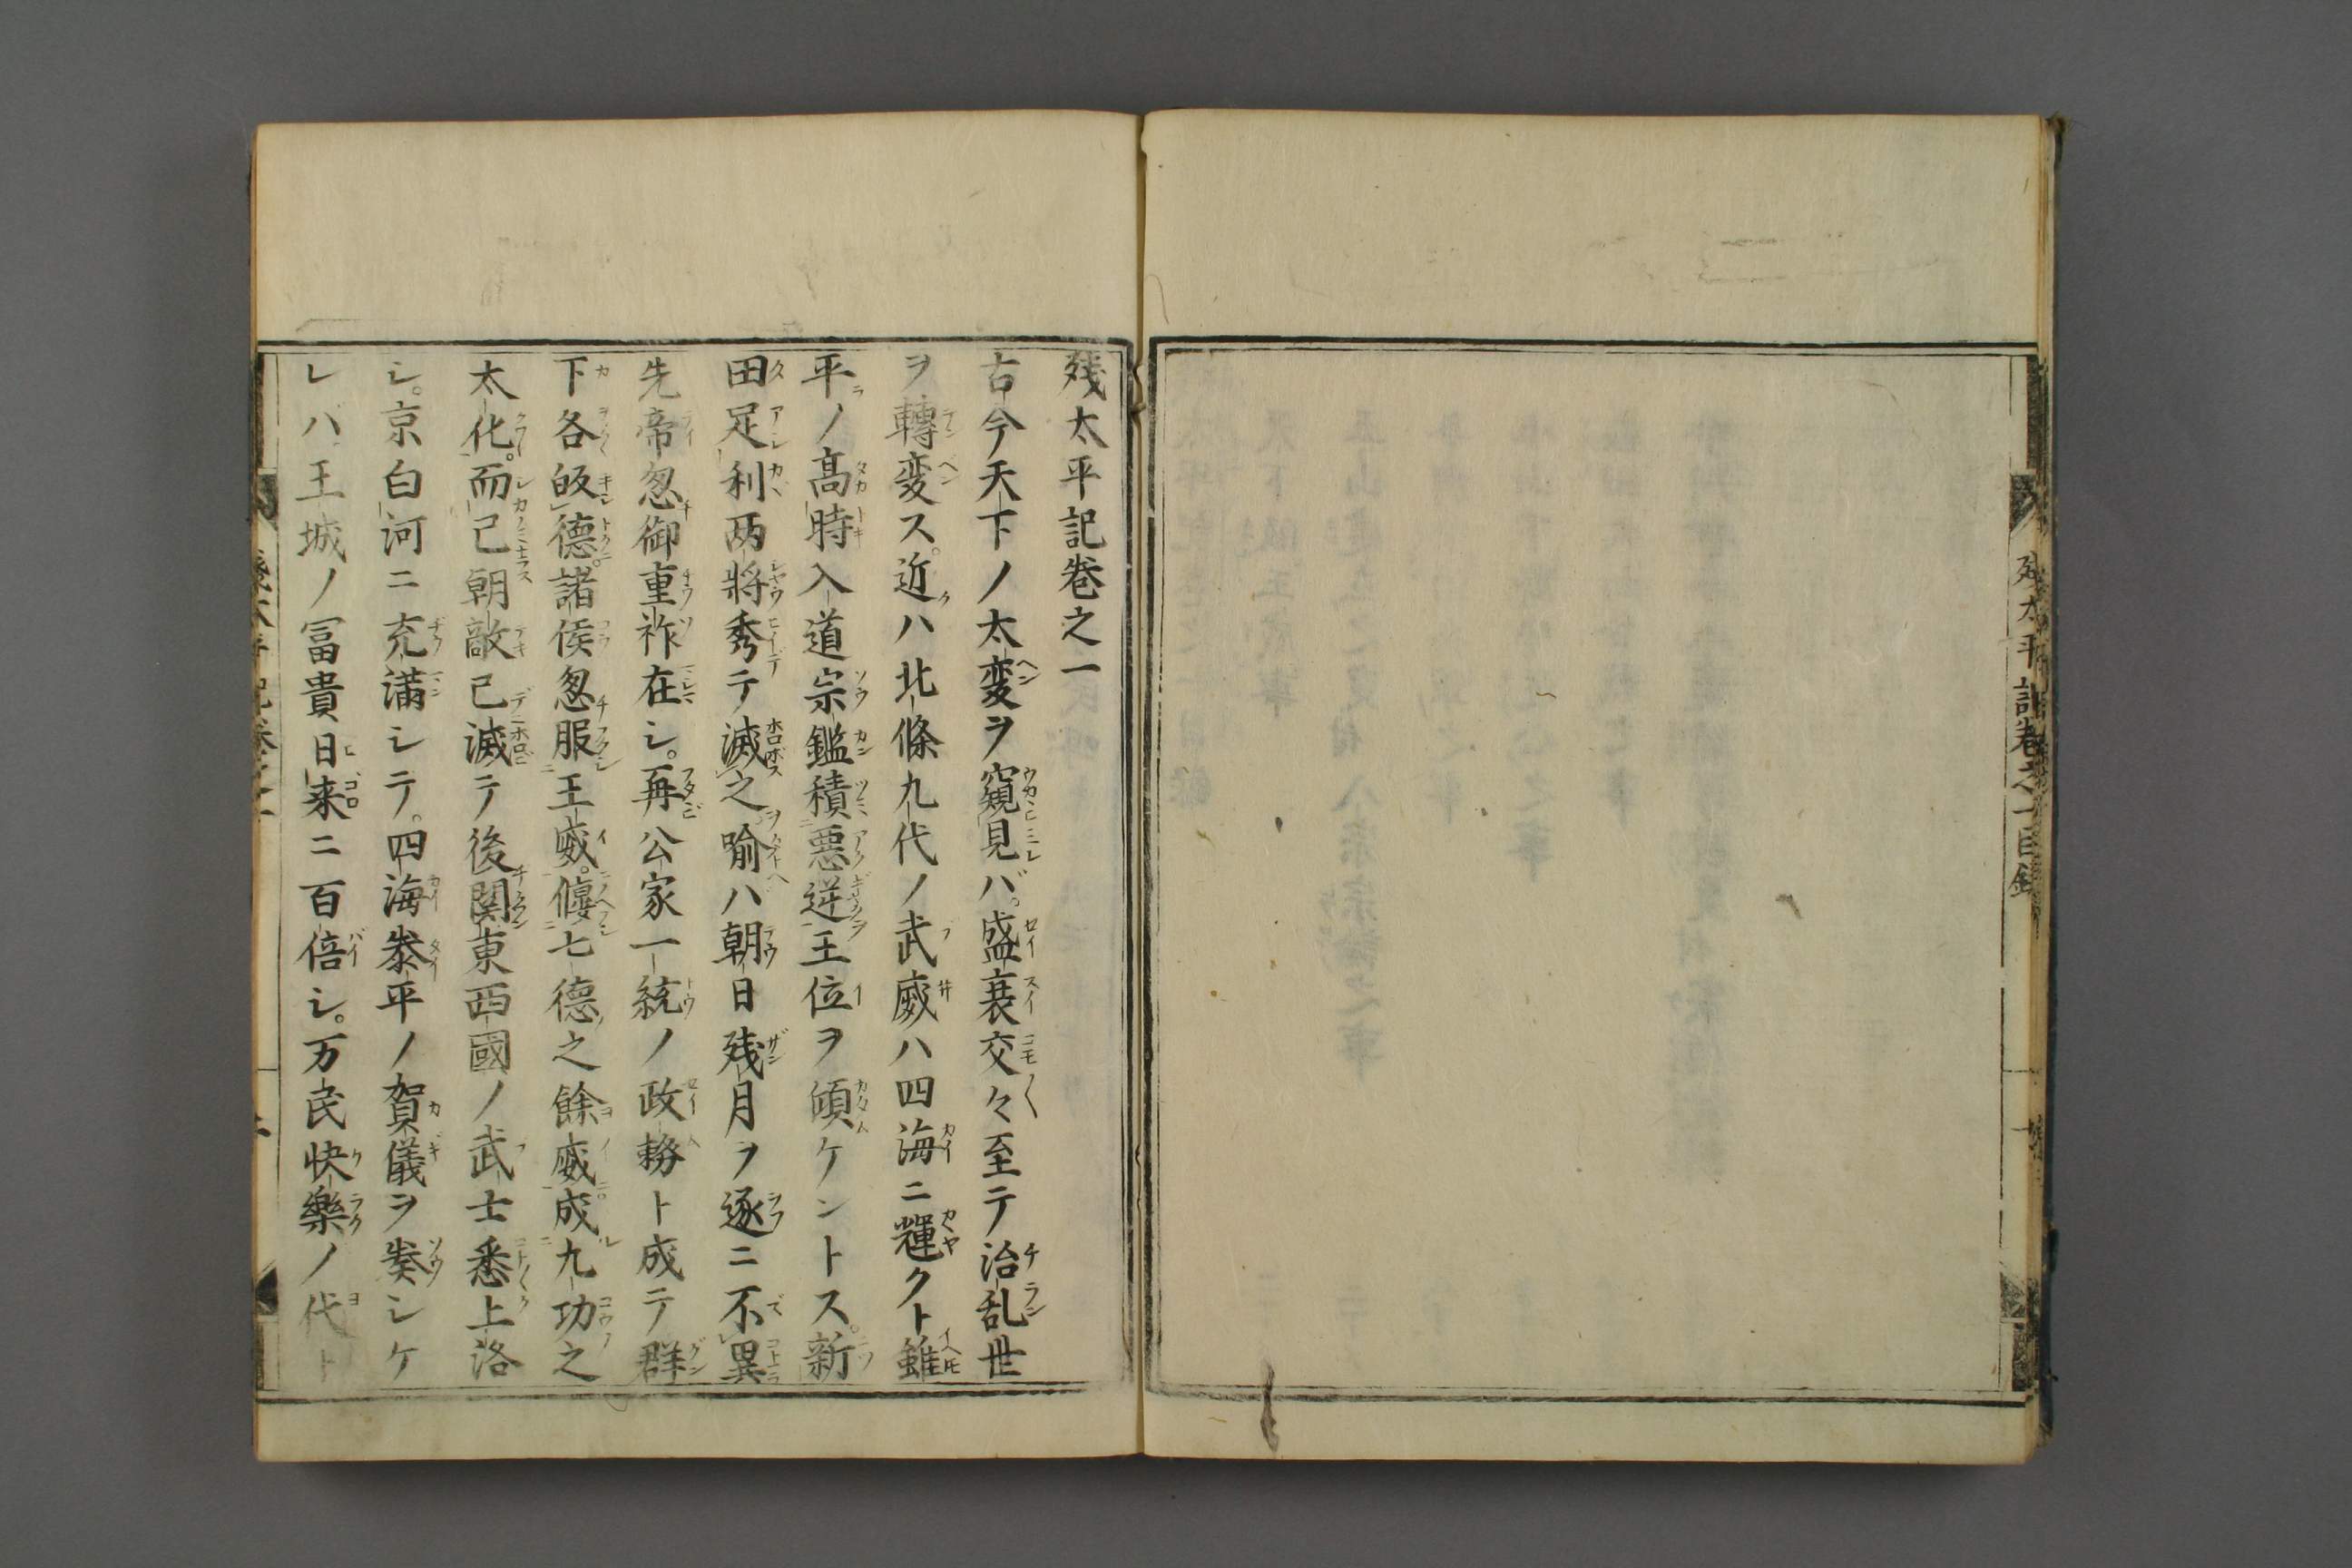 残太平記巻之一目録
残太平記巻之一
古今天下ノ太変ヲ窺見バ。盛衰交々至テ治乱世
ヲ轉変ス。近ハ北條九代ノ武威ハ四海ニ輝クト雖
平ノ高時入道宗鑑積悪逆王位ヲ傾ケントス。新
田足利两將秀テ滅之。喩ハ朝日残月ヲ逐ニ不異
先帝忽御重祚在シ。再公家一統ノ政務ト成テ群
下各皈德。諸侯忽服王威。偃七德之餘威。成九功之
太化。而己朝敵已滅テ後関東西國ノ武士悉上洛
シ。京白河ニ充満シテ。四海泰平ノ賀儀ヲ奏シケ
レバ王城ノ冨貴日来ニ百倍シ。万民快樂ノ代ト